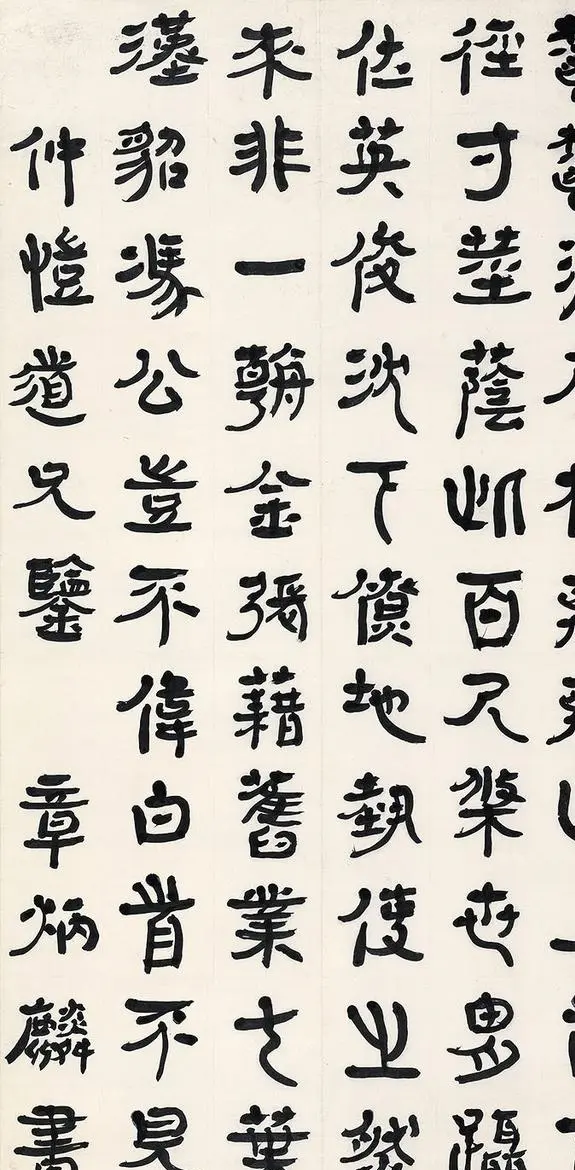 徑寸莖蔭此百尺條世冑躡
位英俊沈下僚地埶使之然
來非一朝金張藉舊業七葉
漢貂馮公豈不偉白首不見
仲愷道兄鑒 章炳麟書